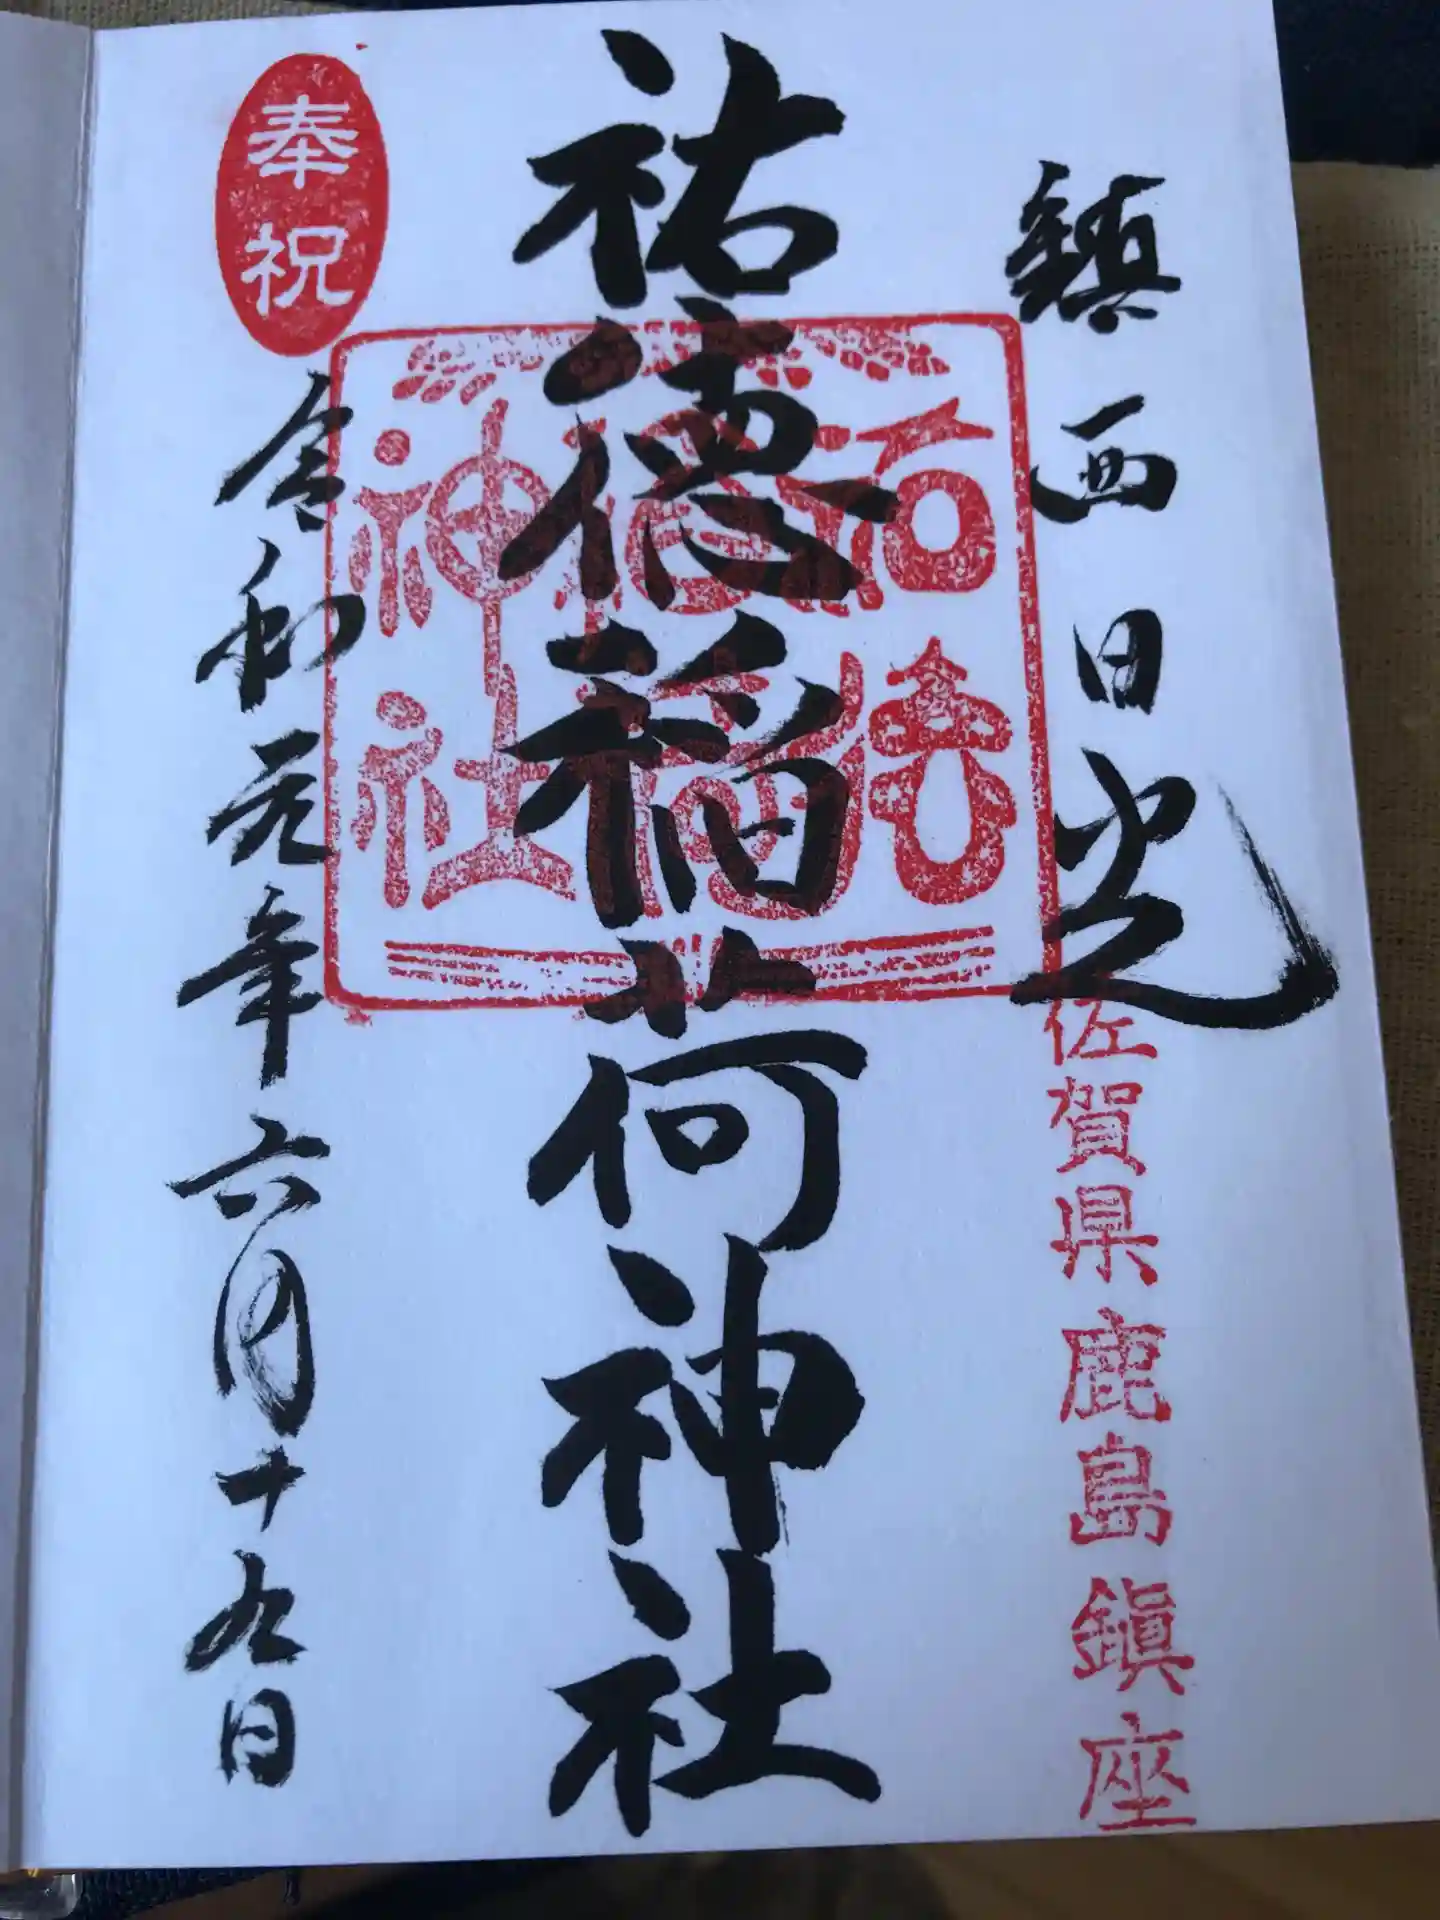 鎮西日光
佐賀県鹿島鎮座
祐徳稲荷神社
祐徳稲荷神社
奉祝
令和元年六月十九日